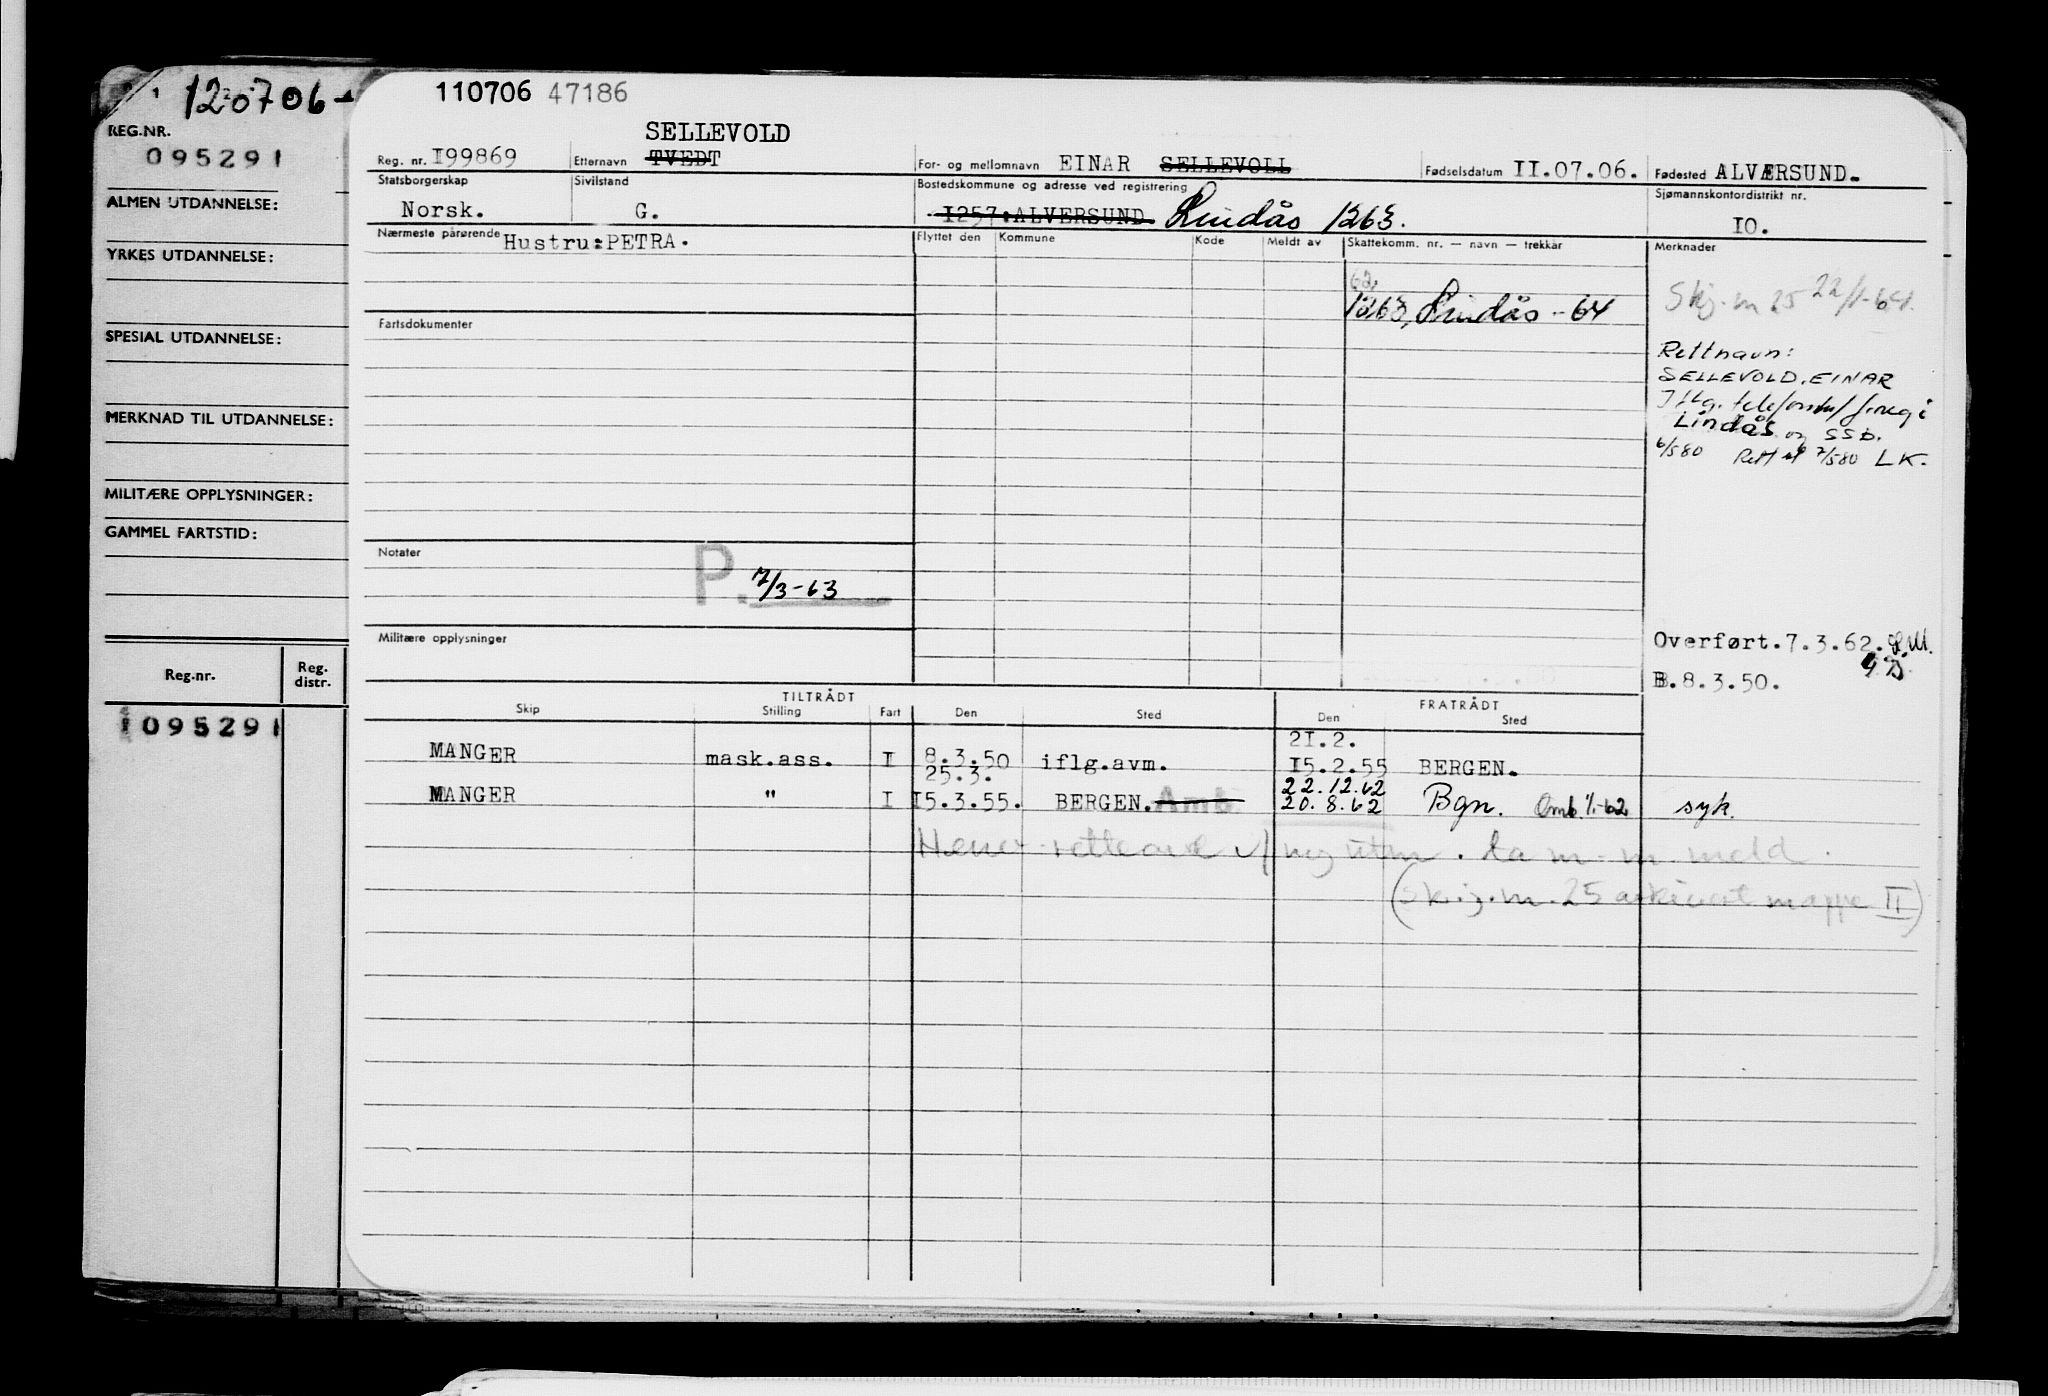 120706-
REG.NR.
095291
ALMEN UTDANNELSE:
YRKES UTDANNELSE:
SPESIAL UTDANNELSE:
MERKNAD TIL UTDANNELSE:
MILITÆRE OPPLYSNINGER:
GAMMEL FARTSTID:
Reg.nr. Reg. distr.
095291
110706 47186
SELLEVOLD
Reg. nr. I99869 Etternavn TVEDT For- og mellomnavn EINAR SELLEVOLL Fødselsdatum II.07.06. Fødested ALVÆRSUND.
Statsborgerskap Sivilstand Bostedskommune og adresse ved registrering Sjømannskontordistrikt nr.
Norsk. G. I257:ALVERSUND Lindås 1263. IO.
Nærmeste pårørende Hustru:PETRA. Flyttet den Kommune Kode Meldt av Skattekomm. nr. — navn — trekkår Merknader
62,
1263, Lindås - 64
Skj. m 25 22/1-64.
Fartsdokumenter
Rett navn:
SELLEVOLD, EINAR
Iflg. telefon
Lindås og SSB.
6/580 Rett 7/580 LK.
Notater
P. 7/3-63
Militære opplysninger
Overført.7.3.62.
B.8.3.50.
TILTRÅDT FRATRÅDT
Skip Stilling Fart Den Sted Den Sted
21.2.
MANGER mask.ass. I 8.3.50 iflg.avm. I5.2.55 BERGEN.
25.3. 22.12.62
MANGER " I I5.3.55. BERGEN. Amb 20.8.62 Bgn. Omb. 1/1-62 syk.
m. m. meld.
(Skj. m. 25 arkivert mappe II)